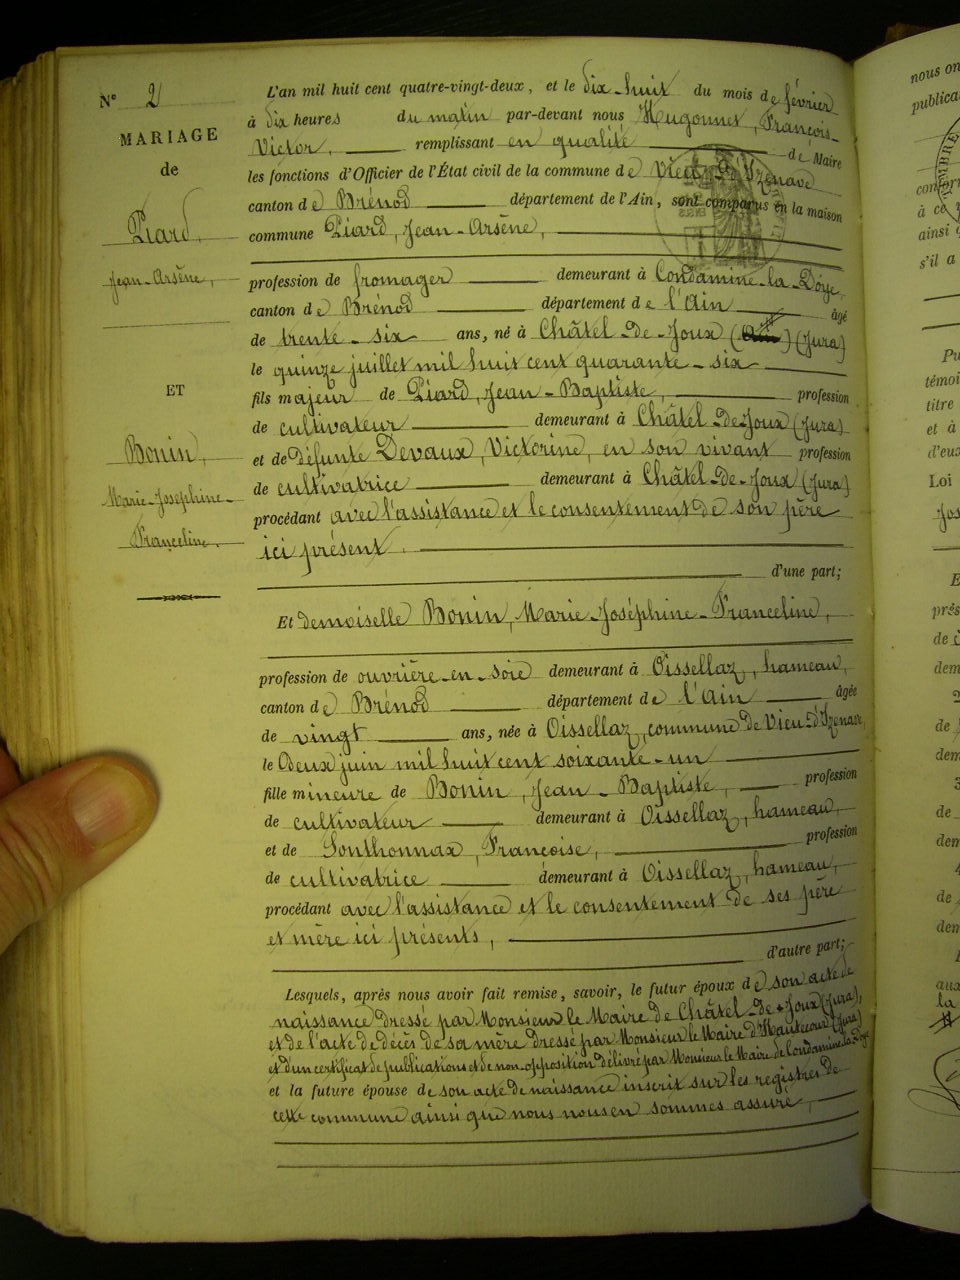 N° 2
MARIAGE
de
Piard,
Jean-Arsène,
ET
Bonin,
Marie-Josephine-
Franceline.
L'an mil huit cent quatre-vingt-deux, et le dix-huit du mois de février
à dix heures du matin par-devant nous Hugonnet, François-
Victor, remplissant en qualité de Maire
les fonctions d'Officier de l'État civil de la commune de Vieu-d'Izenave
canton de Brénod département de l'Ain, sont comparus en la maison
commune Piard, Jean-Arsène,
profession de fromager demeurant à Condamine-la-Doye,
canton de Brénod département de l'Ain âgé
de trente-six ans, né à Châtel-de-Joux (Jura)
le quinze juillet mil huit cent quarante-six
fils majeur de Piard, Jean-Baptiste, profession
de cultivateur demeurant à Châtel-de-Joux (Jura)
et de défunte Devaux, Victorine, en son vivant profession
de cultivatrice demeurant à Châtel-de-Joux (Jura)
procédant avec l'assistance et le consentement de son père
ici présent.
d'une part;
Et demoiselle Bonin, Marie-Joséphine-Franceline,
profession de ouvrière-en-soie demeurant à Oissellaz, hameau,
canton de Brénod département de l'Ain âgée
de vingt ans, née à Oissellaz, commune de Vieu-d'Izenave,
le deux juin mil huit cent soixante-un
fille mineure de Bonin, Jean-Baptiste, profession
de cultivateur demeurant à Oissellaz, hameau,
et de Sonthonnax, Françoise, profession
de cultivatrice demeurant à Oissellaz, hameau,
procédant avec l'assistance et le consentement de ses père
et mère ici présents,
d'autre part;
Lesquels, après nous avoir fait remise, savoir, le futur époux de son acte de
naissance dressé par Monsieur le Maire de Châtel-de-Joux (Jura),
et de l'acte de décès de sa mère dressé par Monsieur le Maire d'Hautecour (Jura)
et d'un certificat de publications et de non-opposition délivré par Monsieur le Maire de Condamine-la-Doye
et la future épouse de son acte de naissance inscrit sur les registres de
cette commune ainsi que nous nous en sommes assuré,
nous on
publica
confor
à ce
ainsi q
s'il a
Pu
témoi
titre
et à
d'eux
Loi
Jos
E
prés
de
dem
2
de
dem
3
de
dem
4
de
dem
aux
la